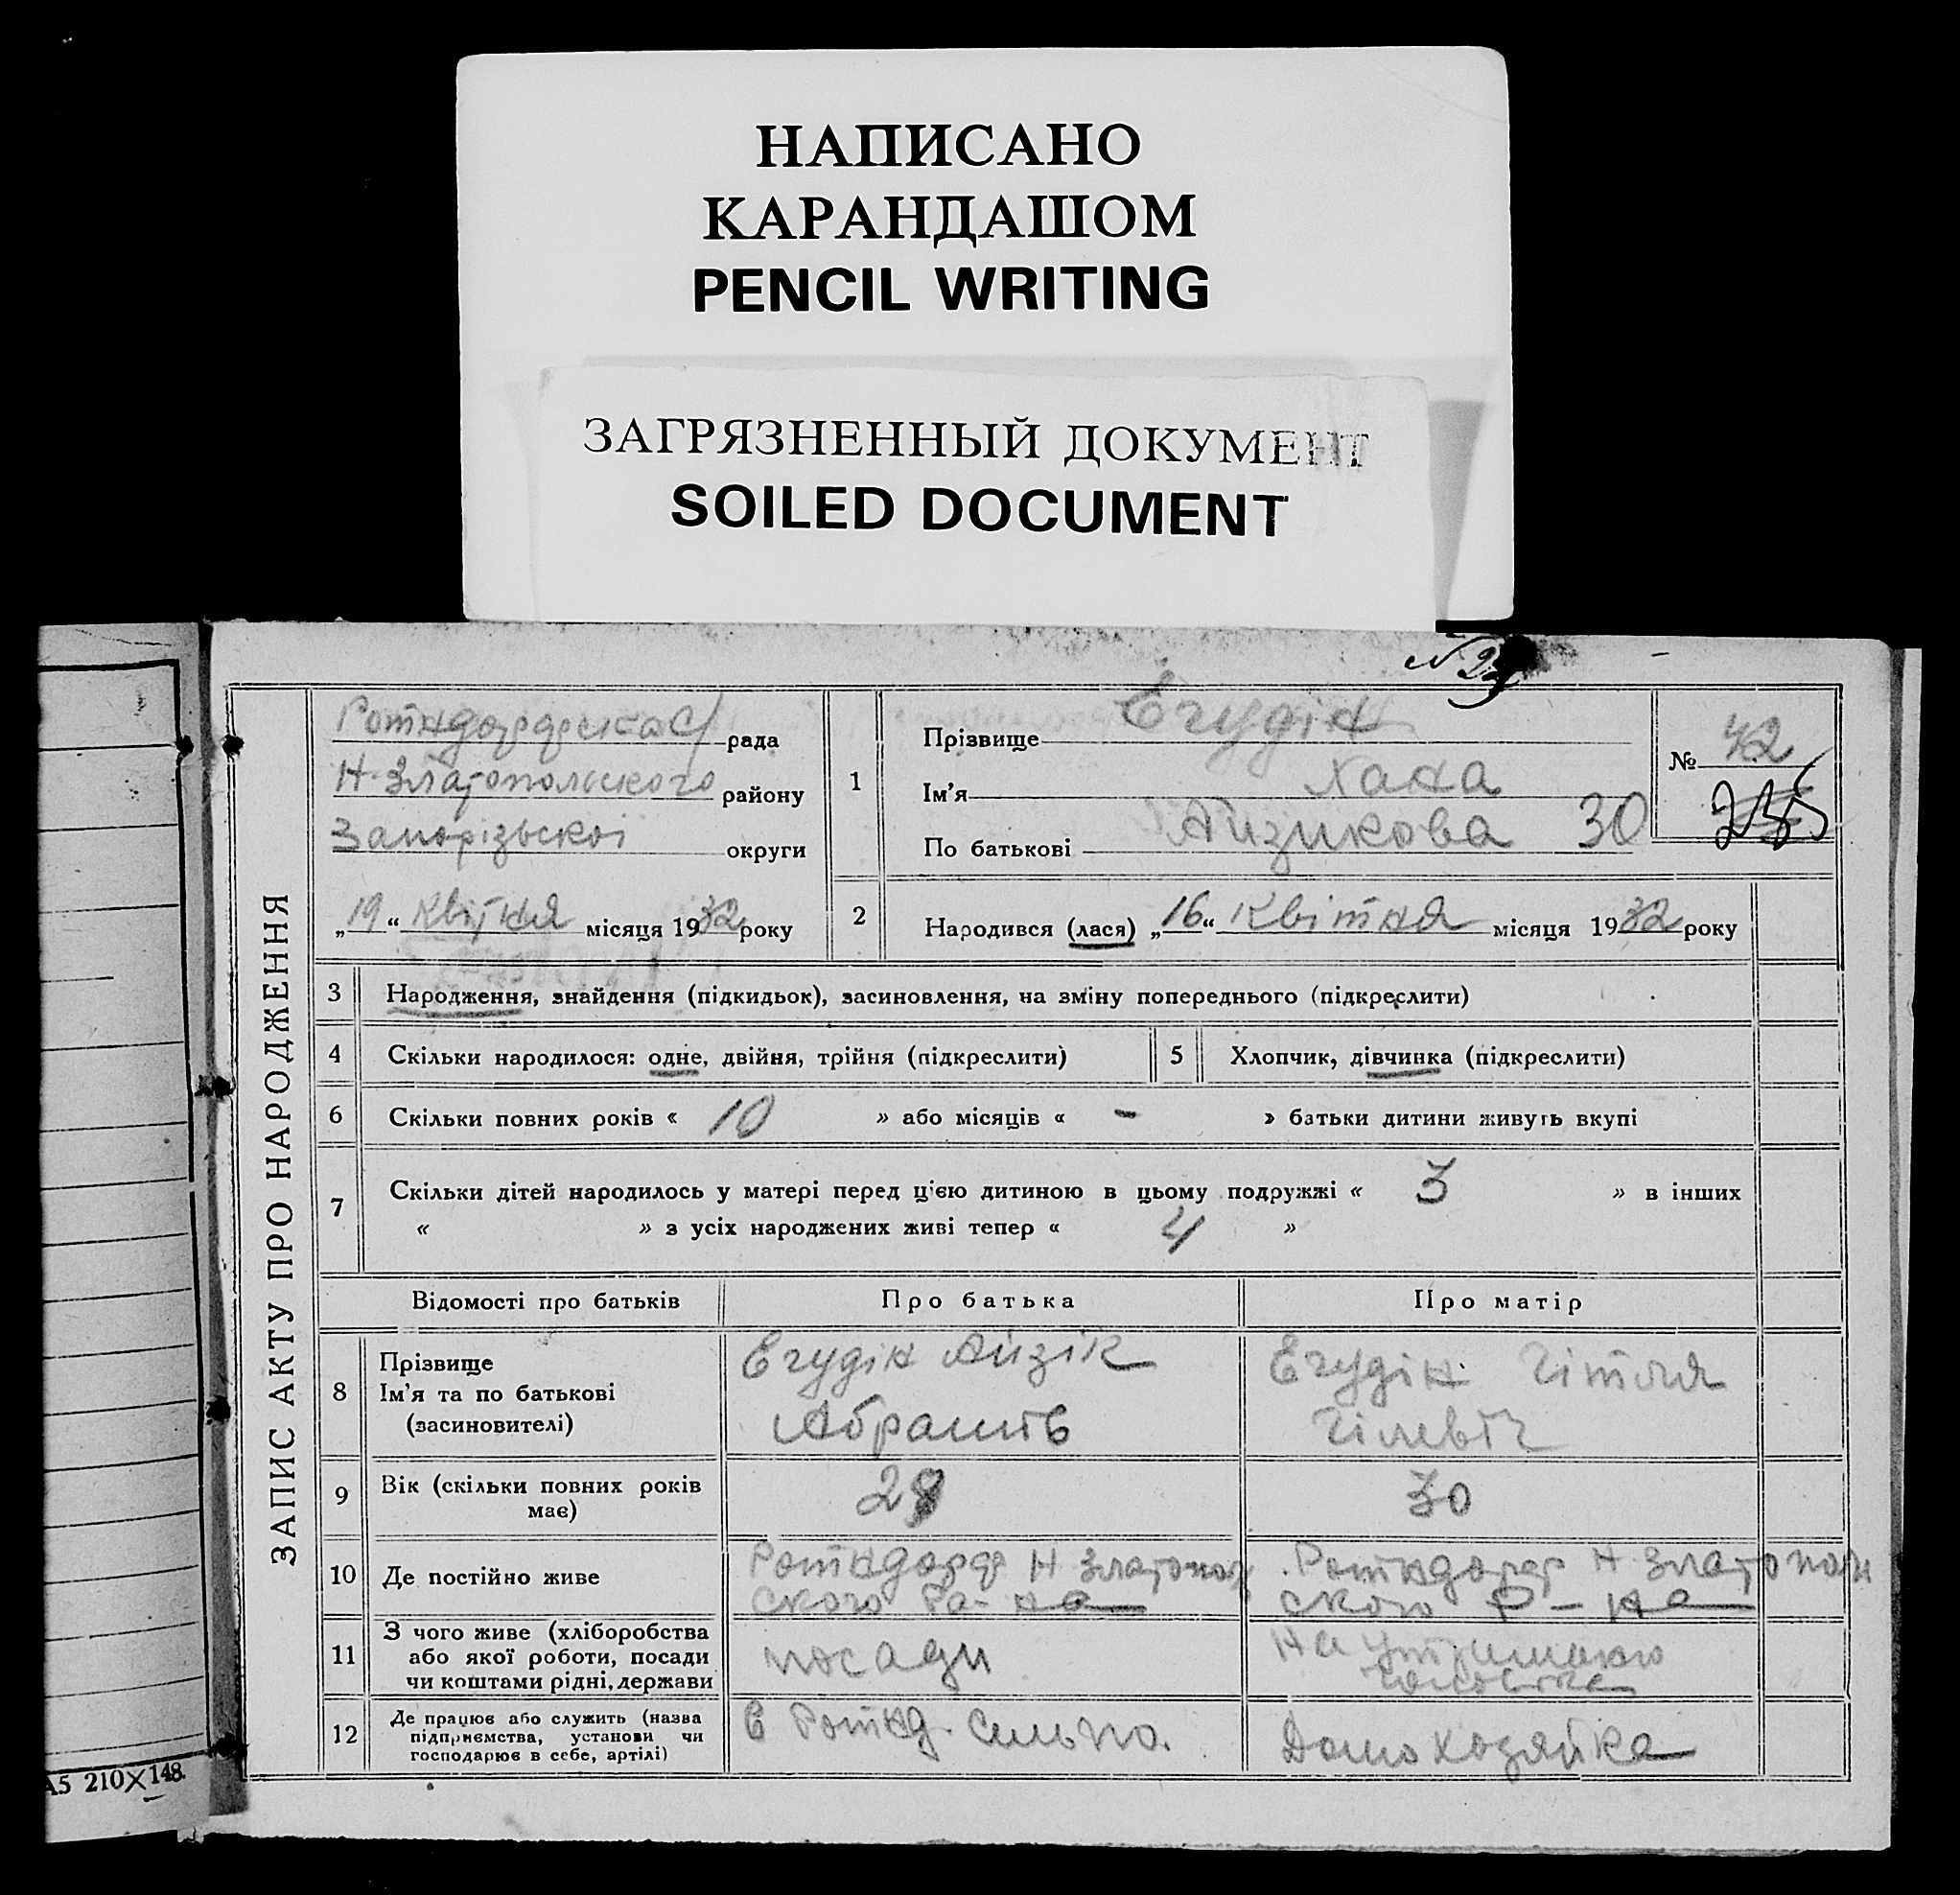 НАПИСАНО
КАРАНДАШОМ
PENCIL WRITING
ЗАГРЯЗНЕННЫЙ ДОКУМЕНТ
SOILED DOCUMENT
ЗАПИС АКТУ ПРО НАРОДЖЕННЯ
рада
Н-Златопольского району
Запорізьскої округи
„19“ Квітня місяця 1932 року
1
Прізвище Егудін
Ім'я Хана
По батькові Айзикова 30
№ 42
2 Народився (лася) „16“ Квітня місяця 1932 року
3 Народження, знайдення (підкидьок), засиновлення, на зміну попереднього (підкреслити)
4 Скільки народилося: одне, двійня, трійня (підкреслити) 5 Хлопчик, дівчинка (підкреслити)
6 Скільки повних років « 10 » або місяців « - » батьки дитини живуть вкупі
7 Скільки дітей народилось у матері перед цією дитиною в цьому подружжі « 3 » в інших
« » з усіх народжених живі тепер « 4 »
Відомості про батьків Про батька Про матір
8 Прізвище
Ім'я та по батькові
(засиновителі)
Егудін Айзік
Егудін Гітля
9 Вік (скільки повних років
має)
30
10 Де постійно живе
Роткдорф Н Златополь
ского Ра-на
Роткдорф Н Златополь
ского Р-на
11 З чого живе (хліборобства
або якої роботи, посади
чи коштами рідні, держави
посади
на
12 Де працює або служить (назва
підприємства, установи чи
господарює в себе, артілі)
в Роткд.
Домохозяйка
А5 210X148.